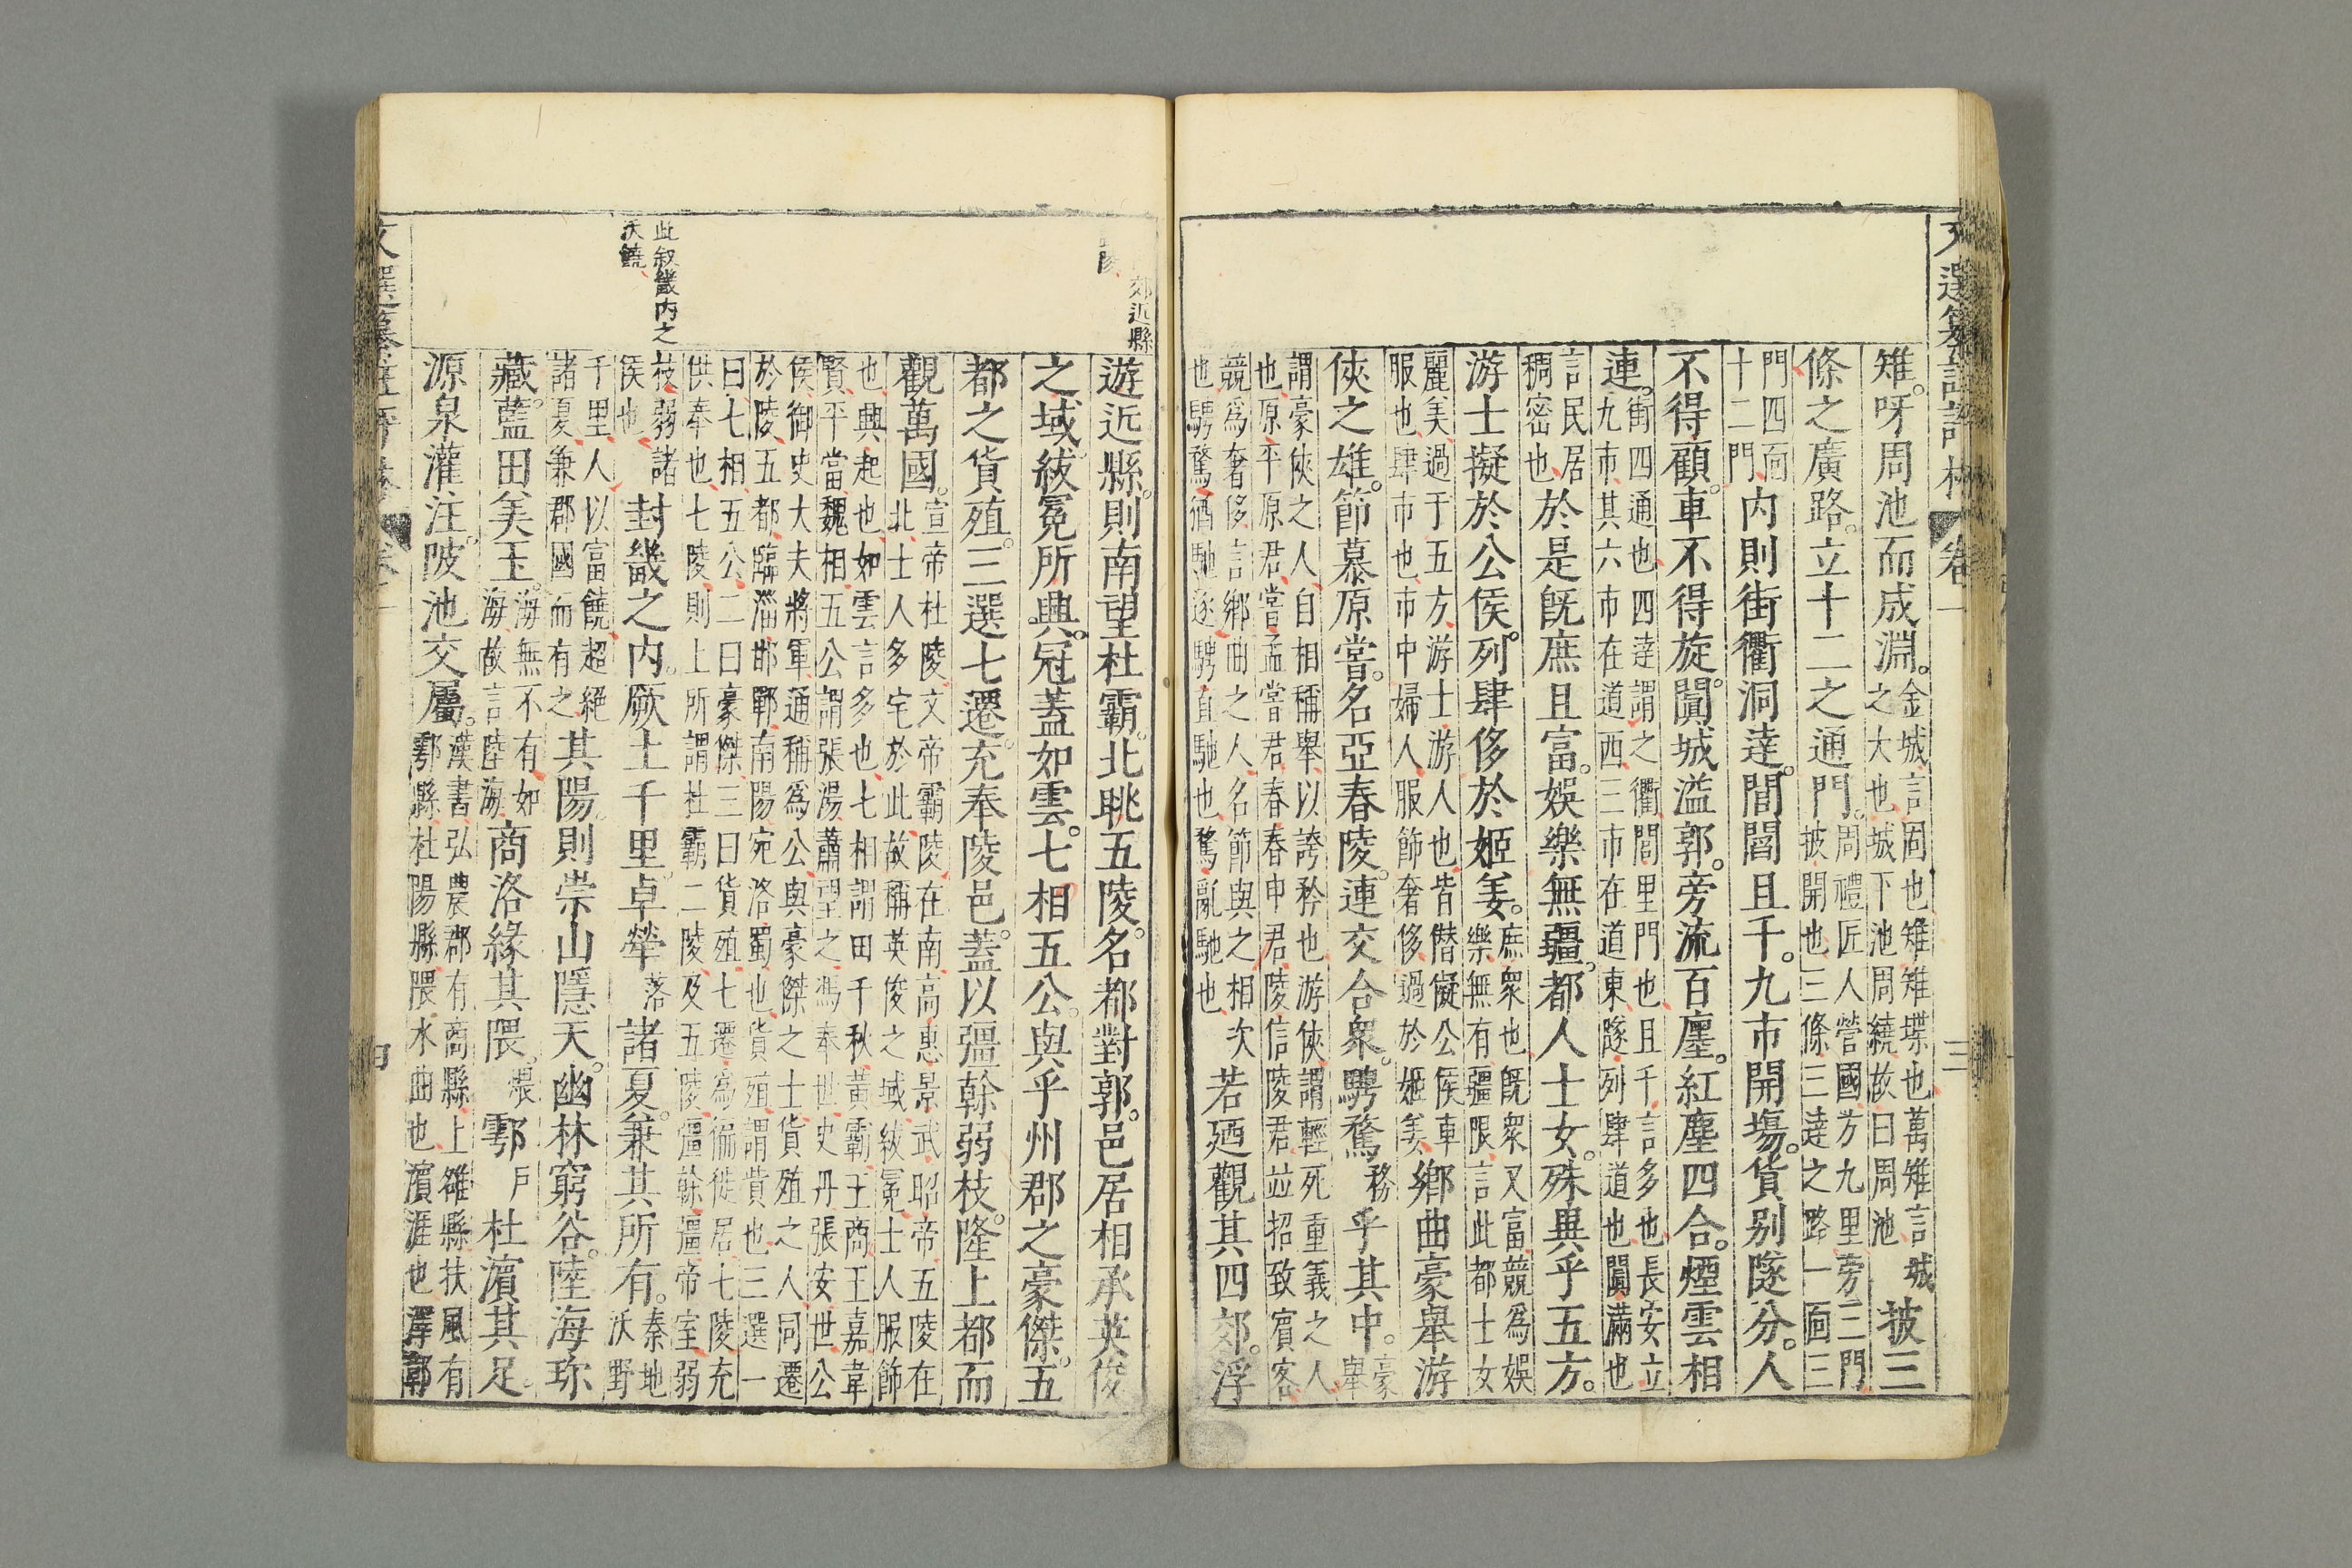 文選纂註評林 卷一 三
雉。呀周池而成淵。金城言固也雉雉堞也萬雉言城之大也城下池周繞故曰周池披三
條之廣路。立十二之通門。周禮匠人營國方九里旁三門披開也三條三達之路一面三
門四面十二門内則街衢洞達。閭閻且千。九市開場。貨别隧分。人
不得顧。車不得旋。闐城溢郭。旁流百廛。紅塵四合。煙雲相
連。街四通也四達謂之衢閭里門也且千言多也長安立九市其六市在道西三市在道東隧列肆道也闐滿也
言民居稠密也於是旣庶且富。娛樂無疆。都人士女。殊異乎五方。
游士擬於公侯。列肆侈於姬姜。庶衆也旣衆又富競爲娛樂無有疆限言此都士女
麗美過于五方游士游人也皆僣儗公侯車服也肆市也市中婦人服飾奢侈過於姬姜鄉曲豪舉游
俠之雄。節慕原嘗。名亞春陵。連交合衆。騁騖務乎其中。豪舉
謂豪俠之人自相稱舉以誇矜也游俠謂輕死重義之人也原平原君嘗孟嘗君春春申君陵信陵君並招致賓客
競爲奢侈言鄉曲之人名節與之相次也騁騖猶馳逐騁直馳也騖亂馳也若廼觀其四郊。浮
郊近縣
陵
遊近縣。則南望杜霸。北眺五陵。名都對郭。邑居相承英俊
之域。紱冕所興。冠蓋如雲。七相五公。與乎州郡之豪傑。五
都之貨殖。三選七遷。充奉陵邑。蓋以彊幹弱枝。隆上都而
觀萬國。宣帝杜陵文帝霸陵在南高惠景武昭帝五陵在北士人多宅於此故稱英俊之域紱冕士人服飾
也興起也如雲言多也七相謂田千秋黃霸王商王嘉韋賢平當魏相五公謂張湯蕭望之馮奉世史丹張安世公
侯御史大夫將軍通稱爲公與豪傑之士貨殖之人同遷於陵五都臨淄邯鄲南陽宛洛蜀也貨殖謂貲也三選一
曰七相五公二曰豪傑三曰貨殖七遷爲徧徙居七陵充供奉也七陵則上所謂杜霸二陵及五陵彊幹疆帝室弱
此叙畿内之
沃饒
枝弱諸侯也封畿之内。厥土千里。卓犖落諸夏。兼其所有。秦地沃野
千里人以富饒超絶諸夏兼郡國而有之其陽。則崇山隱天。幽林窮谷。陸海珎
藏。藍田美玉。海無不有如海故言陸海商洛緣其隈。猥鄠戶杜濵其足。
源泉灌注。陂池交屬。漢書弘農郡有商縣上雒縣扶風有鄠縣杜陽縣隈水曲也濵涯也澤鄣